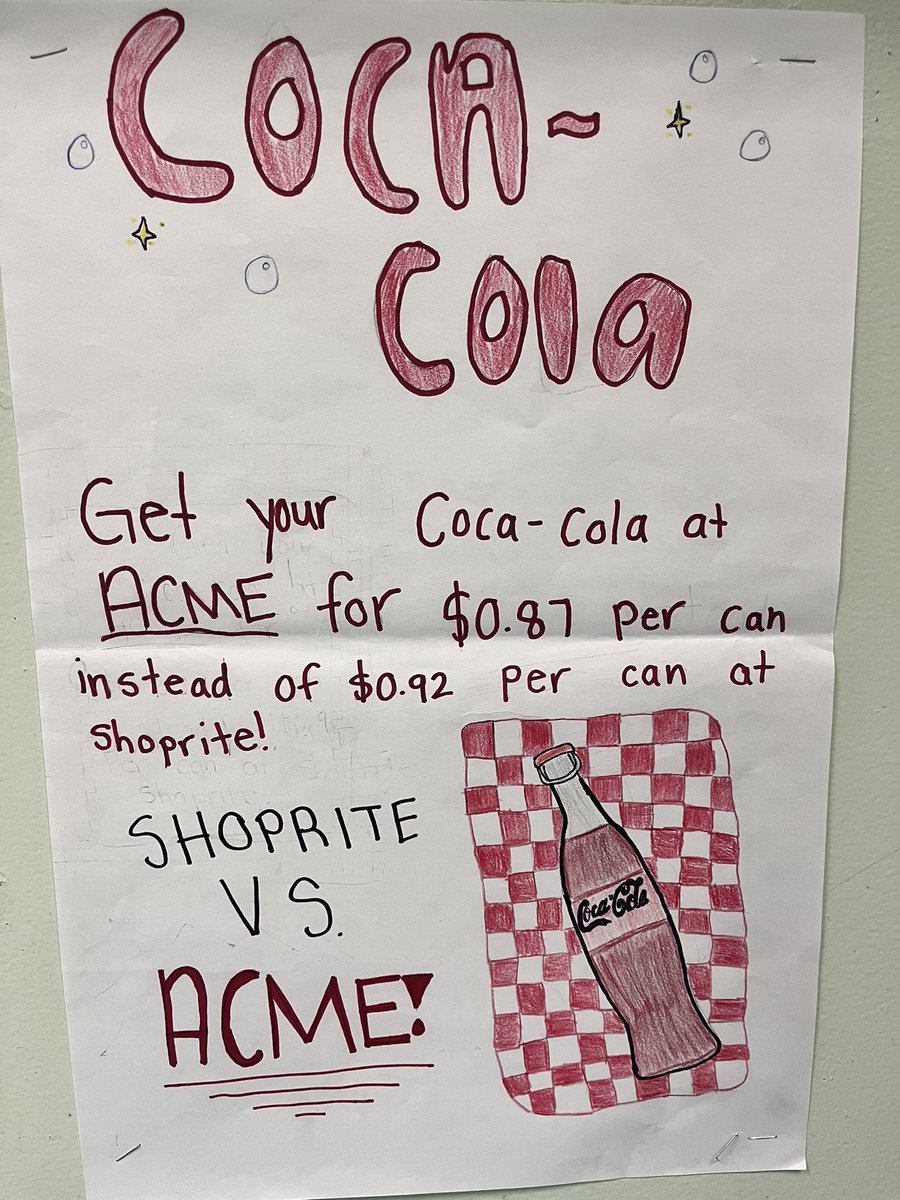 COCA-
Cola
Get your Coca-Cola at
ACME for $0.87 per can
instead of $0.92 per can at
Shoprite!
SHOPRITE
VS.
ACME!
Coca-Cola